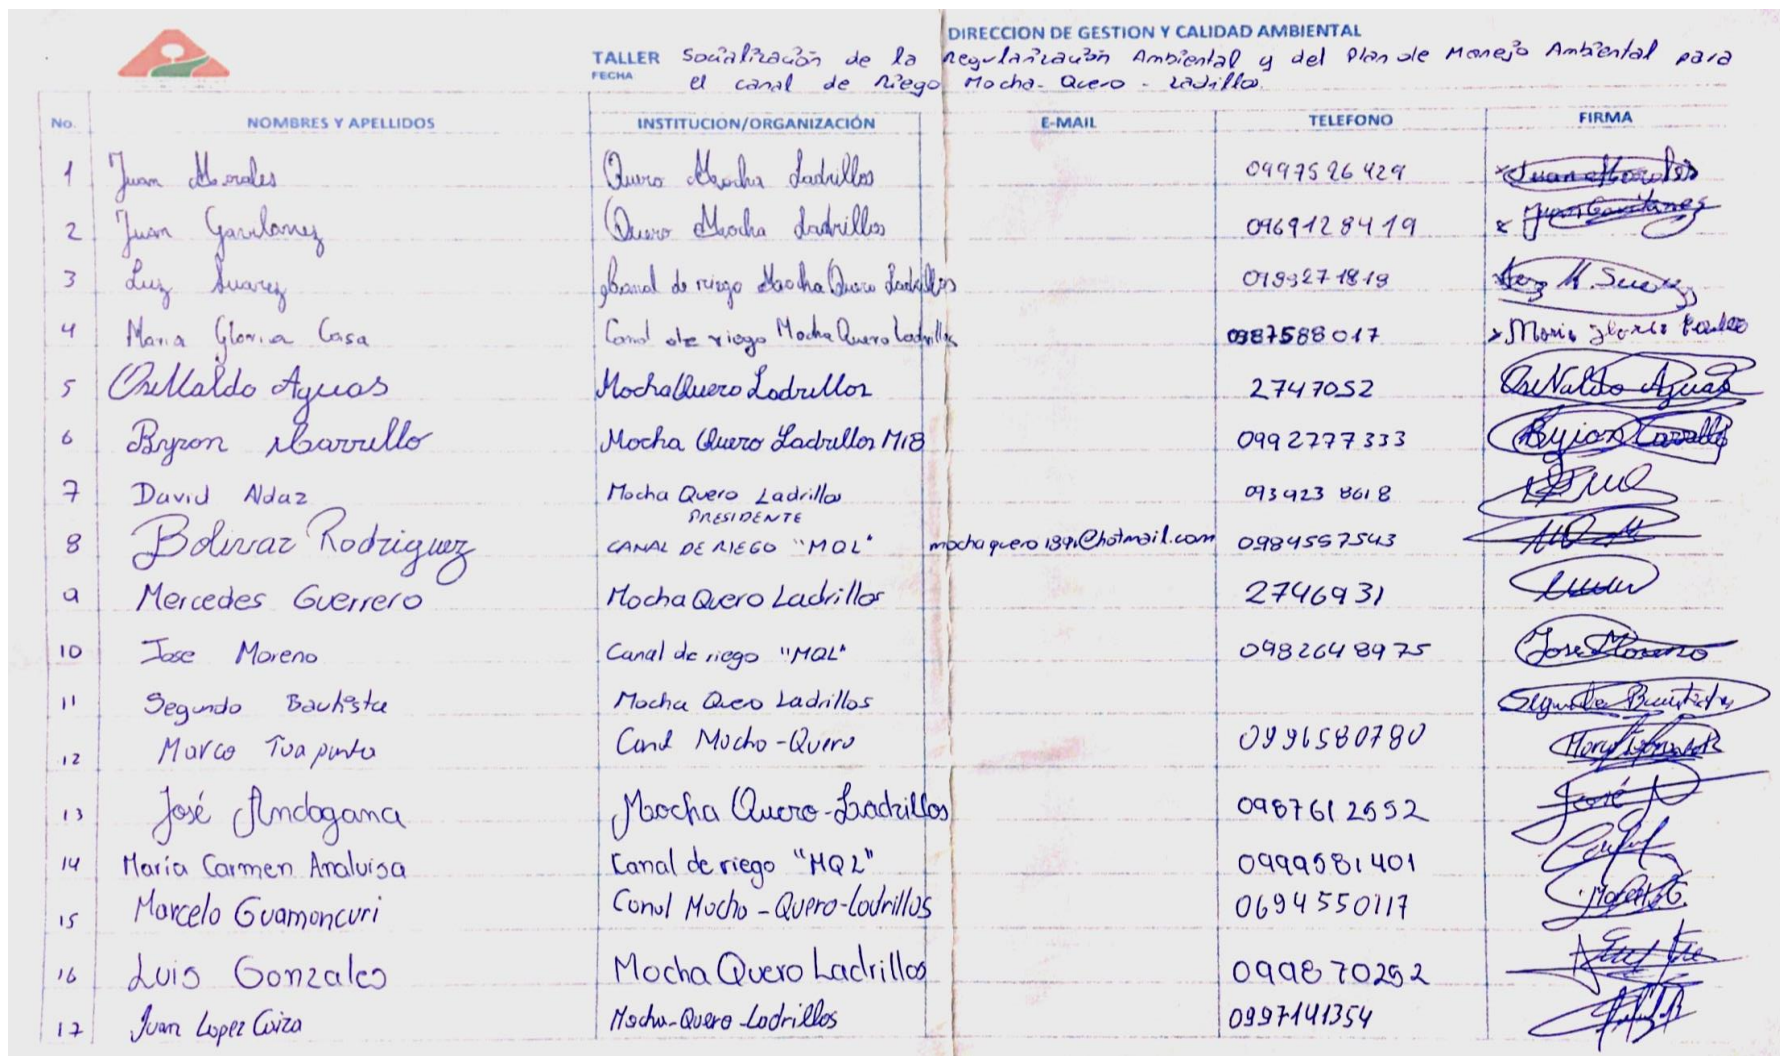 DIRECCION DE GESTION Y CALIDAD AMBIENTAL
TALLER Socialización de la Regularización Ambiental y del Plan de Manejo Ambiental para
FECHA el canal de Riego Mocha - Quero - Ladillos.
No. NOMBRES Y APELLIDOS INSTITUCION/ORGANIZACIÓN E-MAIL TELEFONO FIRMA
1 Juan Morales Quero Mocha Ladrillos 0997526429 Juan Morales
2 Juan Gavilanez Quero Mocha Ladrillos 0969128419 Juan Gavilanez
3 Luz Suarez Canal de riego Mocha Quero Ladrillos Luz M. Suarez
4 Maria Gloria Casa Canal de riego Mocha Quero Ladrillos 0987588017 Maria Gloria
5 OsWaldo Aguas Mocha Quero Ladrillos 2747052 OsWaldo Aguas
6 Byron Carrillo Mocha Quero Ladrillos M18 0992777333 Byron Carrillo
7 David Aldaz Mocha Quero Ladrillos 093923 8618
PRESIDENTE
8 Bolivar Rodriguez CANAL DE RIEGO "MQL" mochaquero1891@hotmail.com 0984557543
9 Mercedes Guerrero Mocha Quero Ladrillos 2746931
10 Jose Moreno Canal de riego "MQL" 0982648975 Jose Moreno
11 Segundo Bautista Mocha Quero Ladrillos Segundo Bautista
12 Marco Tuapanta Canal Mocha - Quero 0991580780
13 José Andagana Mocha Quero - Ladrillos 0987612552 José
14 María Carmen Analuisa Canal de riego "MQL" 0999581401
15 Marcelo Guamancuri Canal Mocha - Quero - Ladrillos 0694550117
16 Luis Gonzales Mocha Quero Ladrillos 099870252
17 Juan Lopez Caiza Mocha - Quero - Ladrillos 0997141354